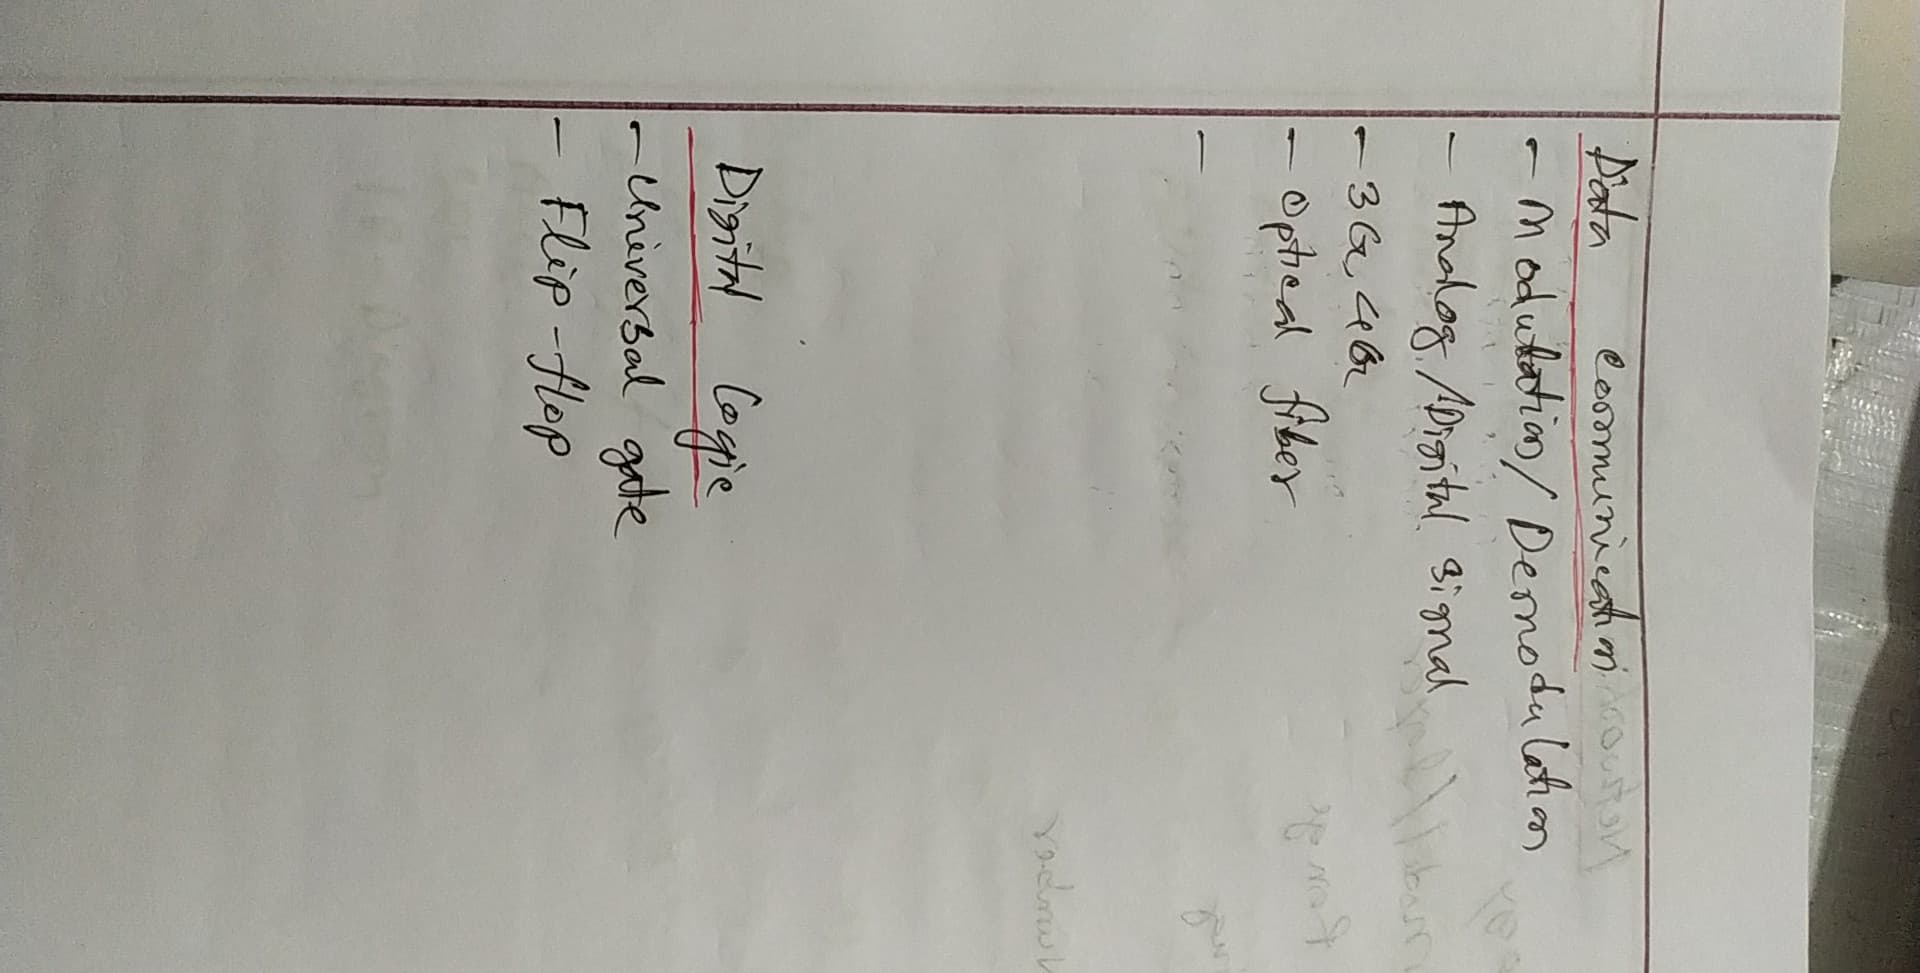 Data Communication
- Modulation/Demodulation
- Analog/Digital signal
- 3G, 4G
- Optical fiber
-
Digital Logic
- Universal gate
- Flip-flop